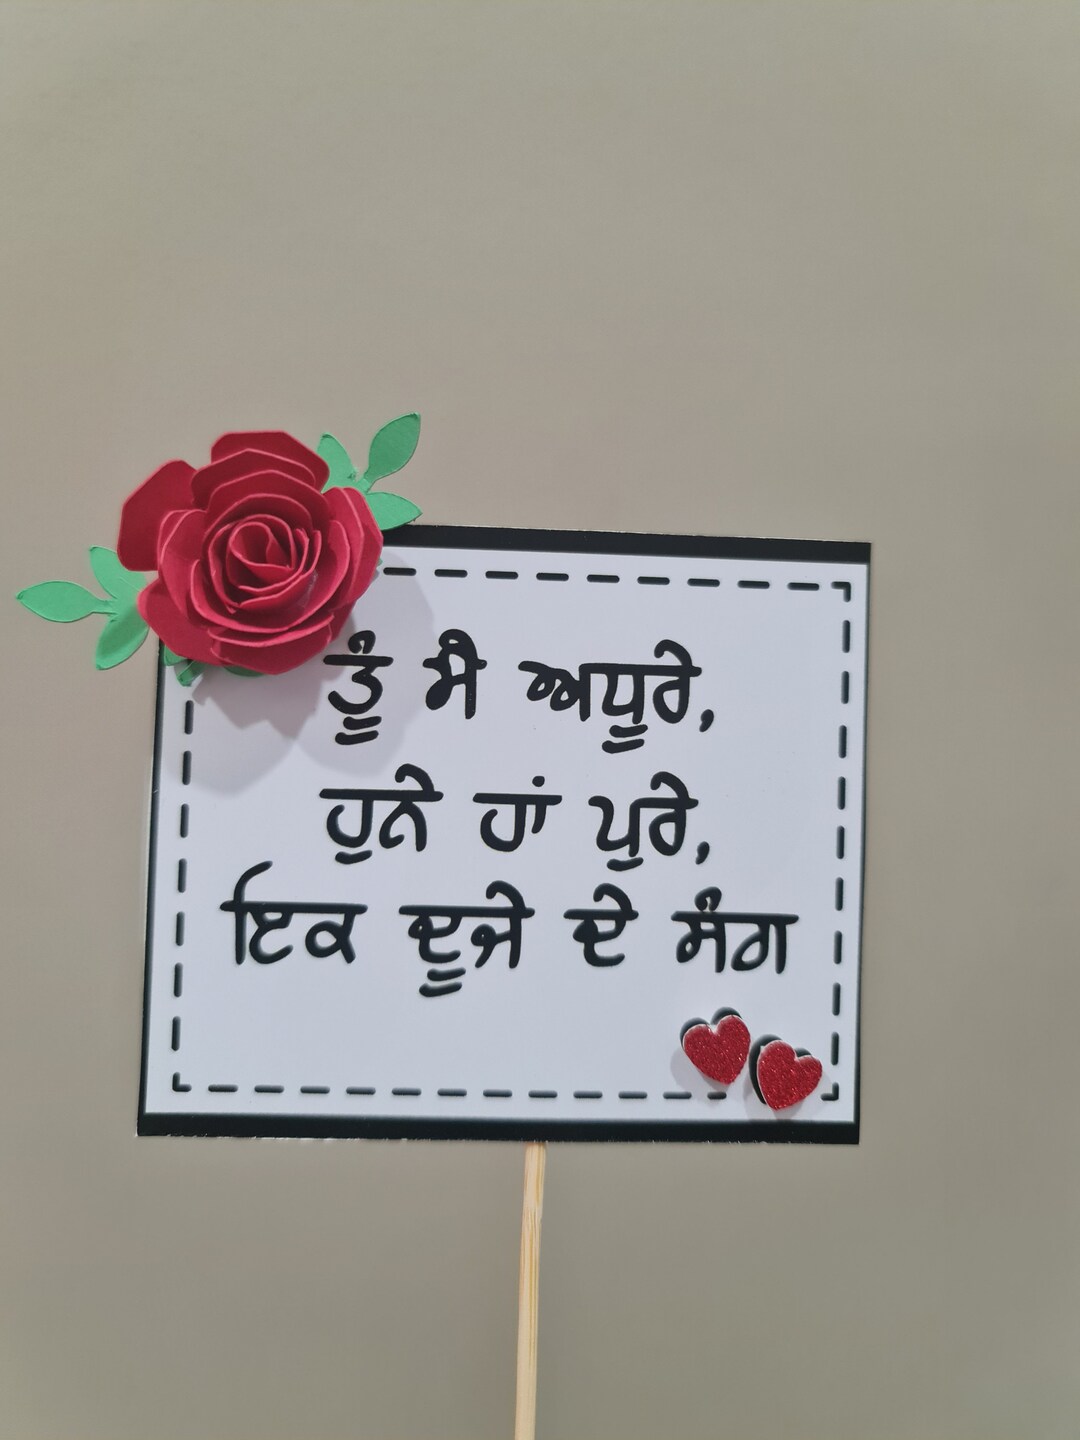 ਤੂੰ ਮੈ ਅਧੂਰੇ,
ਹੁਨੇ ਹਾਂ ਪੁਰੇ,
ਇਕ ਦੂਜੇ ਦੇ ਸੰਗ